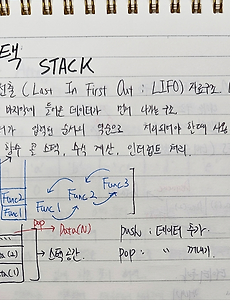 택 STACK
선출 (Last In First Out : LIFO) 자료구조
마지막에 들어온 데이터가 먼저 나가는 구조.
터가 입력된 순서의 역순으로 처리되어야 한 때 사용
함수 콜 스택, 수식 계산, 인터럽트 처리.
Func3
Func2
Func1
Func2
Func1
pop
Data(N)
push : 데이터 추가.
...
ta(2)
스택 공간.
pop : 〃 꺼내기.
ta(1)